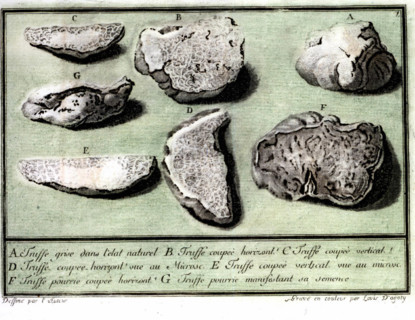 C B A 1
G
D F
E
A Truffe grise dans l'etat naturel. B Truffe coupée horisont.t C Truffé coupée vertical.t
D Truffe coupée horisont. vue au Microsc. E Truffe coupée vertical. vue au microsc.
F Truffe pourrie coupée horisont.t G Truffe pourrie manifestant sa semence
Dessiné par l'Auteur Gravé en couleur par Louis Dagoty